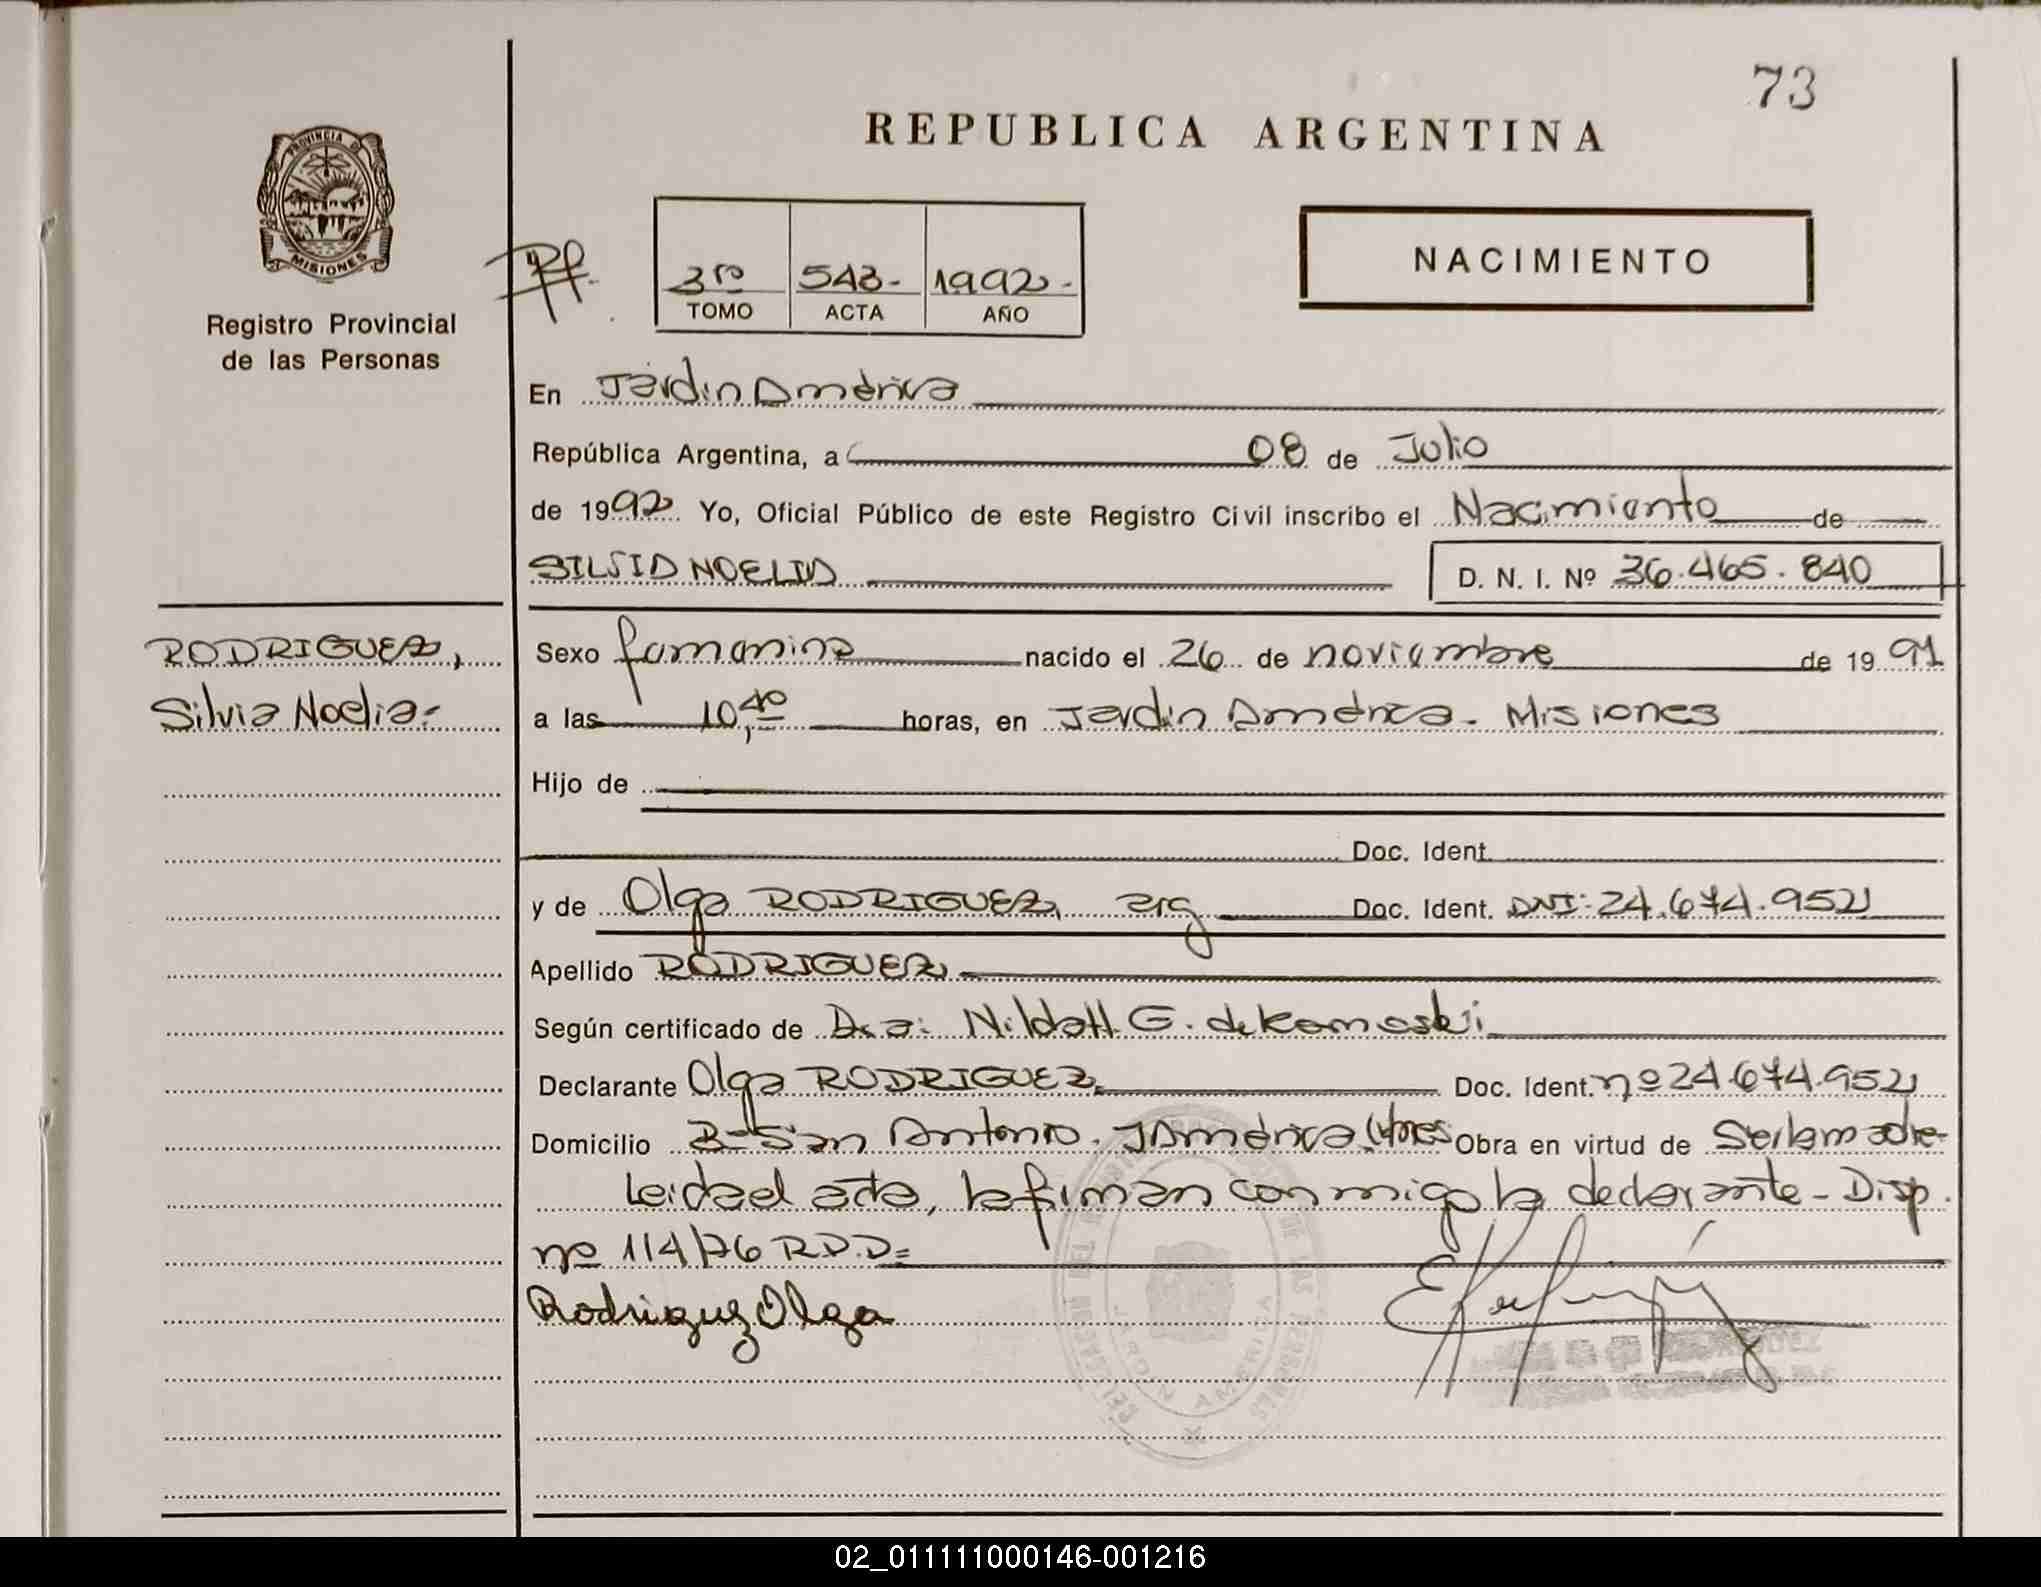 73
REPUBLICA ARGENTINA
PROVINCIA DE
MISIONES
Registro Provincial
de las Personas
3ro 543- 1992-
TOMO ACTA AÑO
NACIMIENTO
En Jardin América
República Argentina, a 08 de Julio
de 1992 Yo, Oficial Público de este Registro Civil inscribo el Nacimiento de
SILVIA NOELIA D. N. I. Nº 36.465.840
RODRIGUEZ,
Silvia Noelia-
Sexo femenina nacido el 26 de noviembre de 1991
a las 10,40 horas, en Jardin América. Misiones
Hijo de
Doc. Ident.
y de Olga RODRIGUEZ, arg Doc. Ident. DNI: 24.674.952
Apellido RODRIGUEZ
Según certificado de Dra: Nilda H. G. de
Declarante Olga RODRIGUEZ. Doc. Ident. nº 24.674.952
Domicilio Bº San Antonio. J América Obra en virtud de Ser la madre-
Leida el acta, la firman conmigo la declarante - Disp.
nº 114/76 R.D.D=
Rodriguez Olga
JARDIN AMERICA
02_011111000146-001216